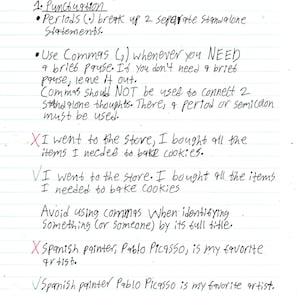 1. Punctuation
• Periods (.) break up 2 seperate standalone
statements.
• Use Commas (,) whenever you NEED
a brief pause. If you don't need a brief
pause, leave it out.
Commas should NOT be used to connect 2
standalone thoughts. There, a period or semicolon
must be used.
X I went to the store, I bought all the
items I needed to bake cookies.
√ I went to the store. I bought all the items
I needed to bake cookies
Avoid using commas when identifying
something (or someone) by its full title.
X Spanish painter, Pablo Picasso, is my favorite
artist.
√ Spanish painter Pablo Picasso is my favorite artist.